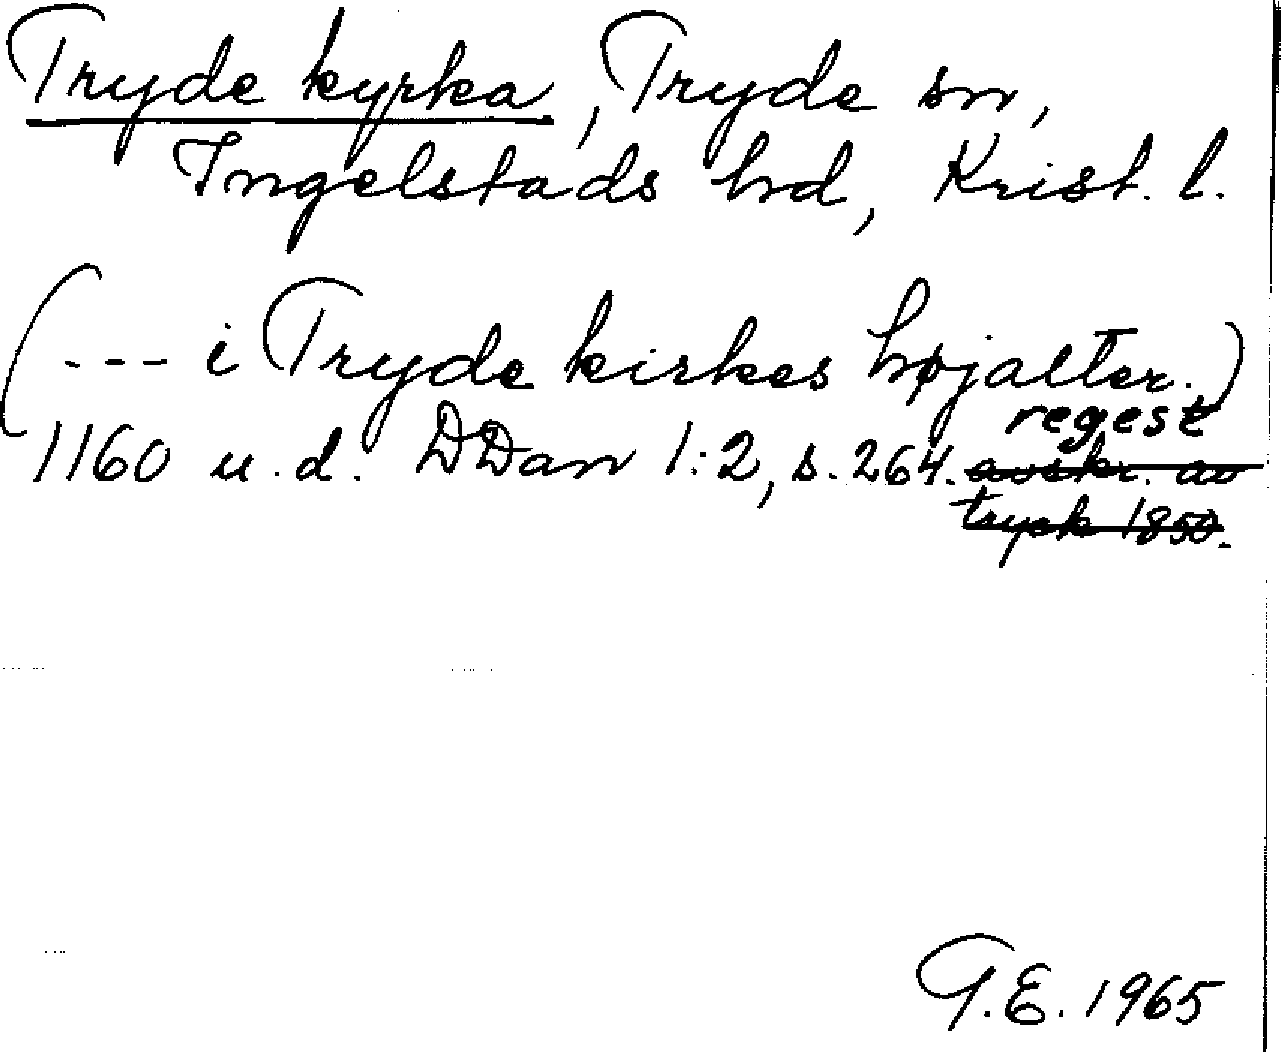 Tryde kyrka, Tryde sn,
Ingelstads hd, Krist. l.
(--- i Tryde kirkes højalter.)
regest
1160 u.d. DDan 1:2, s. 264. avskr. av
tryck 1850.
G.E. 1965